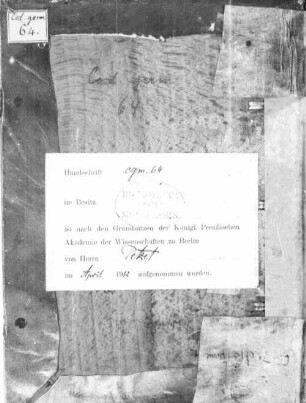 Cod. germ.
64.
Cod. germ.
64.
Handschrift cgm. 64
im Besitz
ist nach den Grundsätzen der Königl. Preußischen
Akademie der Wissenschaften zu Berlin
von Herrn
im April 1912 aufgenommen worden.